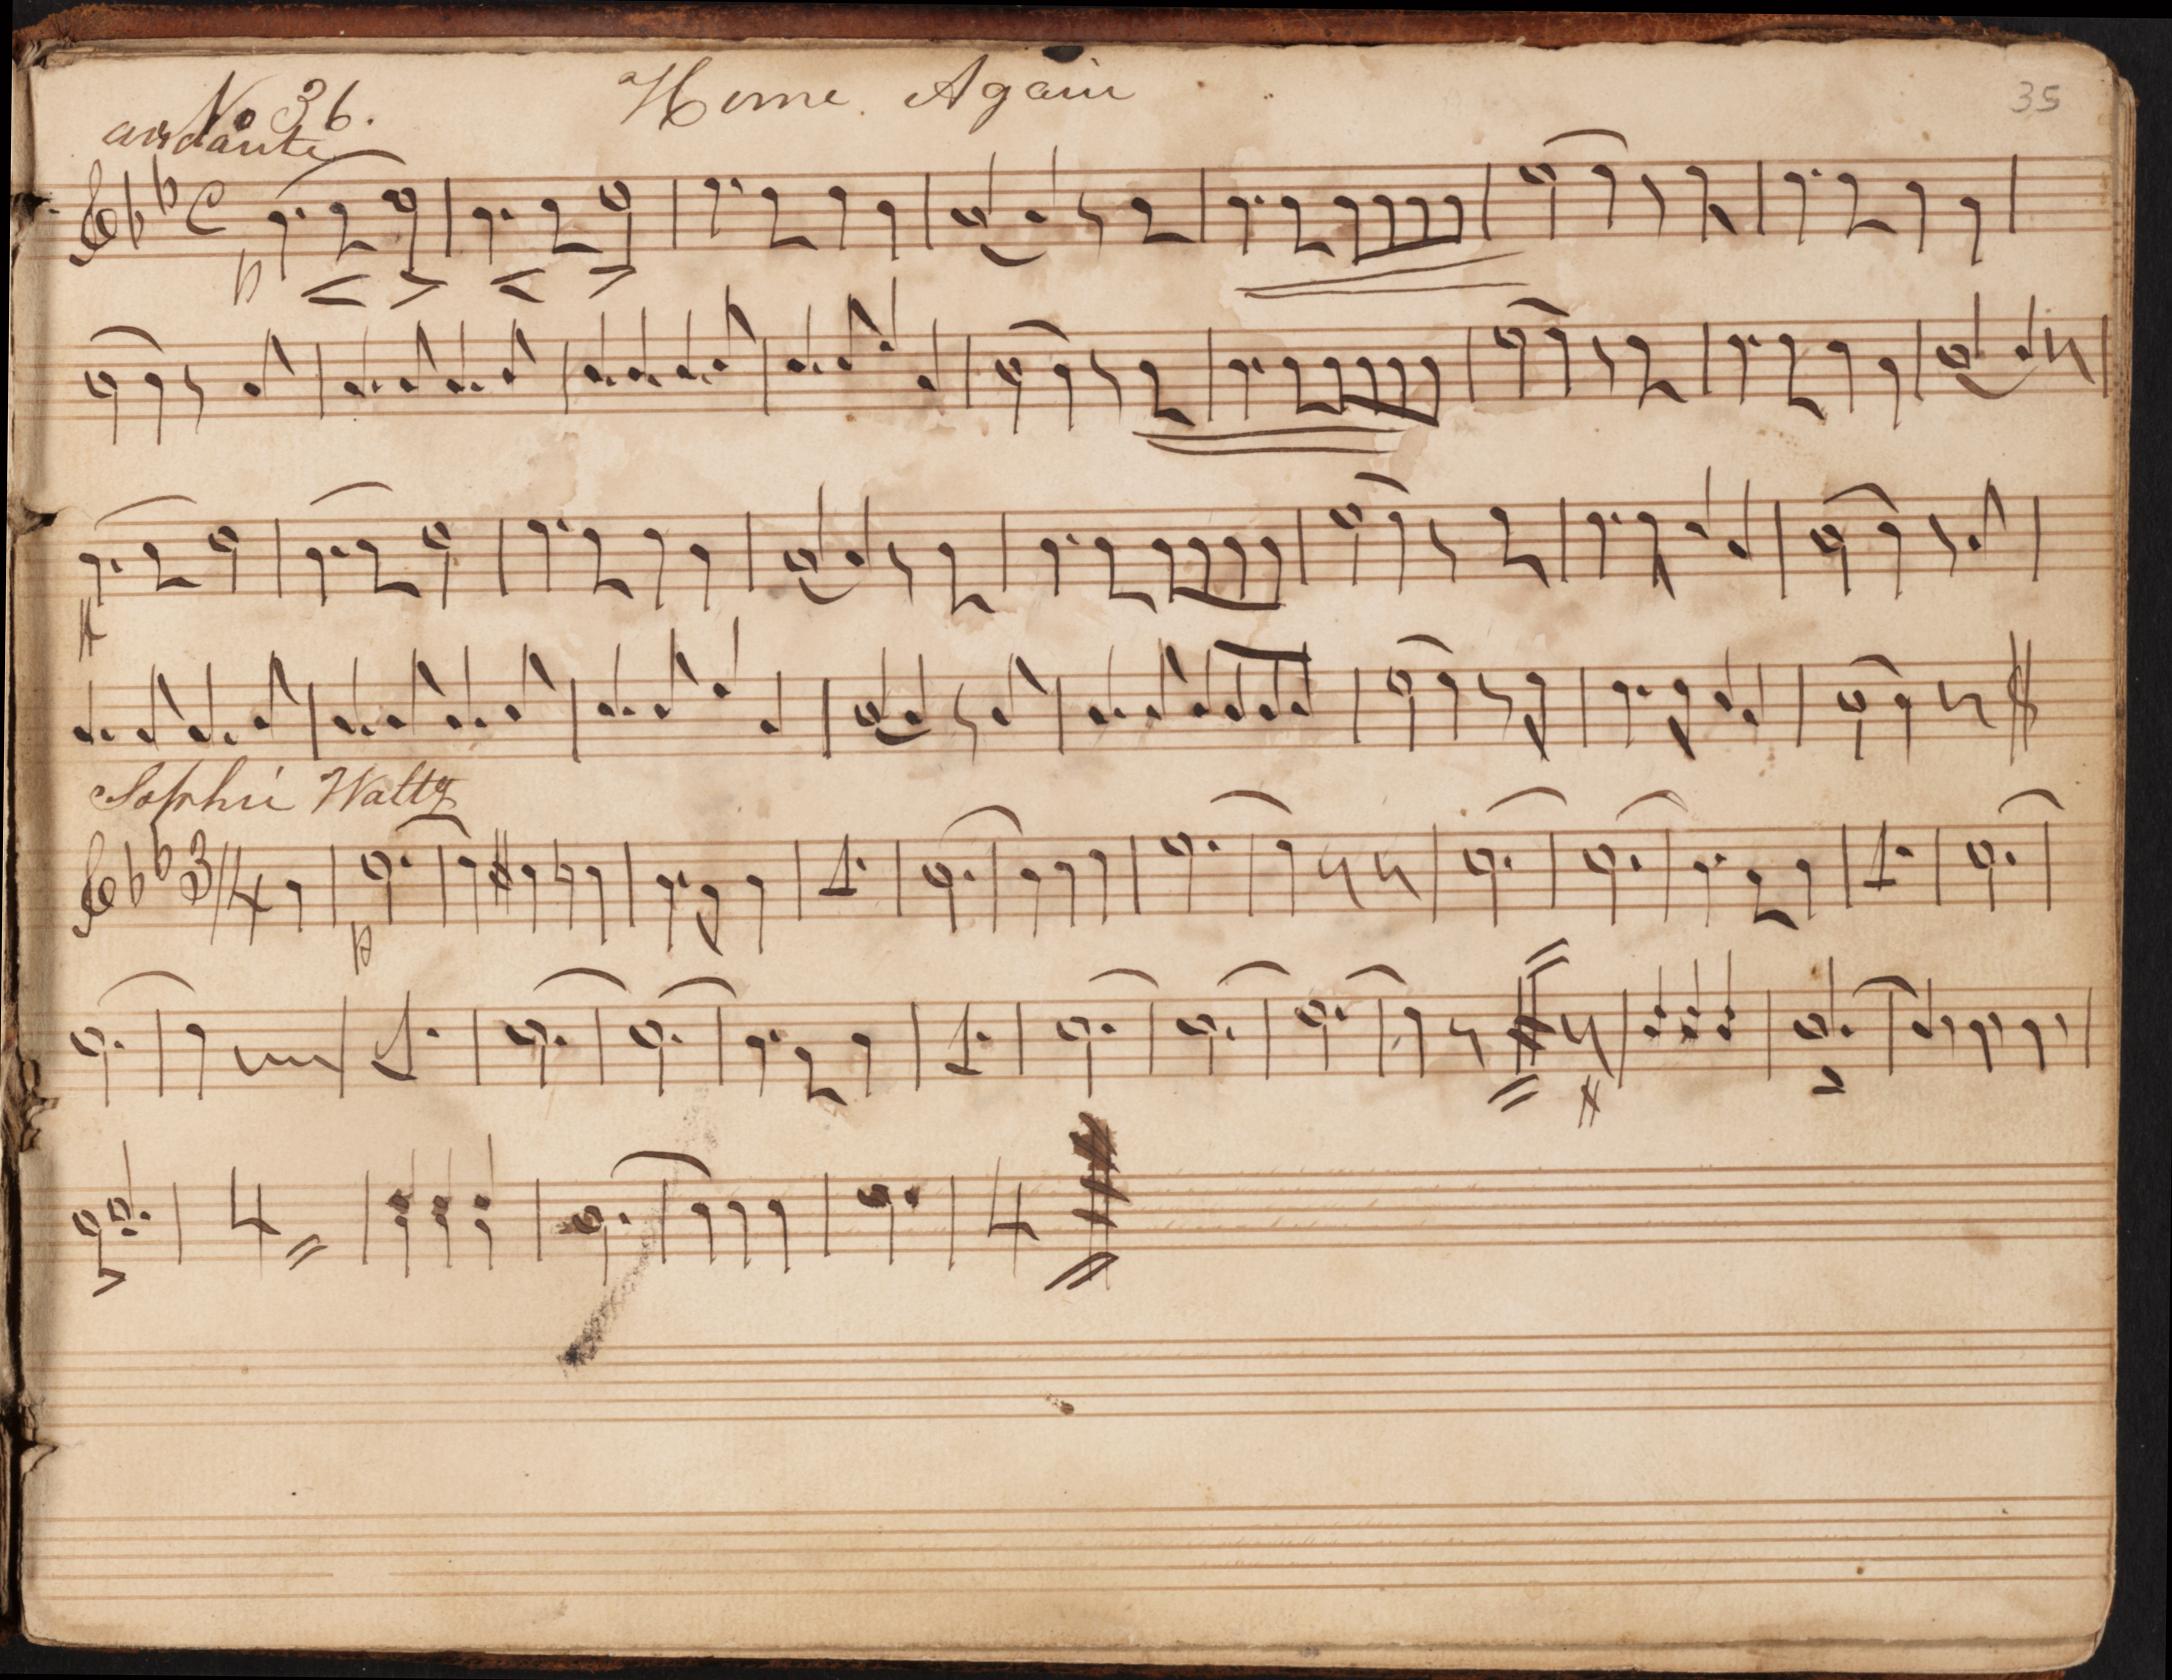 No 36. Home Again 35
andante
C
p
Sophie Waltz
3/4
p